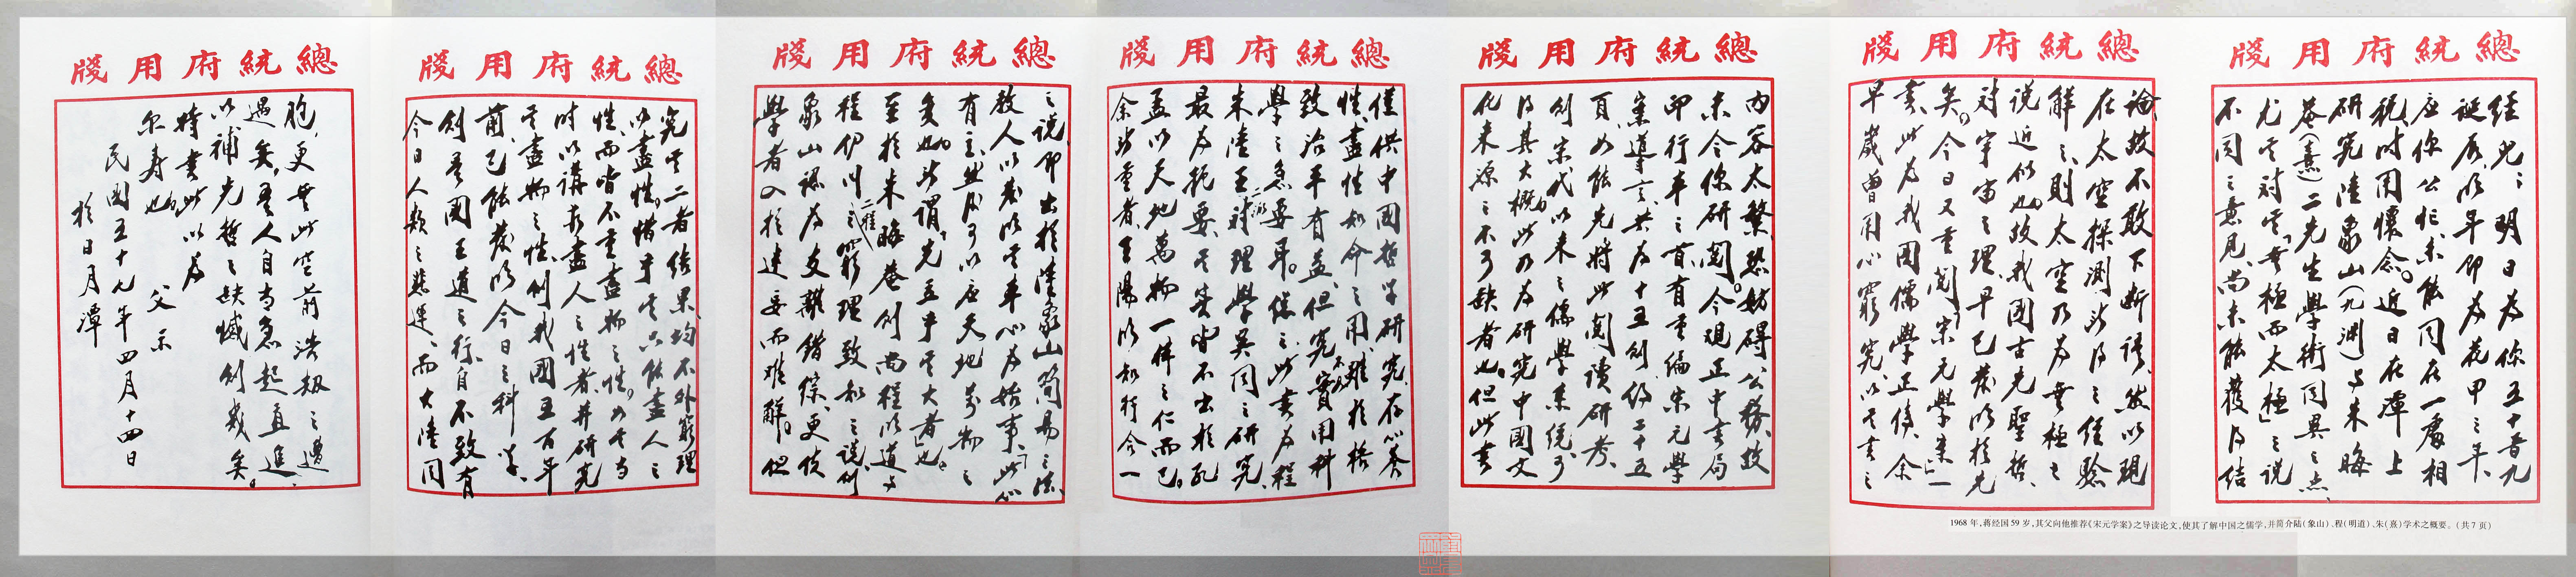 總統府用牋
经兒:明日为你五十晋九
誕辰,明年即为花甲之年,
应你公忙,未能同在一處相
祝,时用懷念。近日在潭上
研究陸象山(九渊)与朱晦
菴(熹)二先生學術同異之点,
尤其对其「無極而太極」之说
不同之意見,尚未能獲得结
總統府用牋
論,故不敢下斷语,然以現
在太空探测所得之经驗
解之,則太空乃为無極之
说近似也。故我國古先聖哲,
对宇宙之理,早已发明於先
矣。今日又重阅「宋元學案」一
書,此为我國儒學正傳,余
早歲曾用心窮究,以其書之
1968 年,蒋经国 59 岁,其父向他推荐《宋元学案》之导读论文,使其了解中国之儒学,并简介陆(象山)、程(明道)、朱(熹)学术之概要。(共 7 页)
總統府用牋
内容太繁,恐妨碍公務,故
未令你研阅。今观正中書局
印行本之首有重编宋元學
案導言,共为十五刻,仅二十五
頁,如能先将此阅读研考,
则宋代以来之儒學系统,可
得其大概。此乃为研究中國文
化来源之不可缺者也。但此書
總統府用牋
僅供中國哲学研究,存心養
性,盡性知命之用,雖於格
致治平有益,但究不切實用科
學之急要耳。總之,此書为程
朱陸王二派对理學異同之研究,
最为扼要,其实皆不出於孔
孟以天地萬物一体之仁而已。
余所重者,王陽明,知行合一
總統府用牋
之说,即出於陸象山簡易之法,
教人以发明其本心为始事,「此心
有主,然后可以应天地萬物之
变也」,所謂「先立乎其大者」也。
至於朱晦菴则尚程明道与
程伊川二程之窮理致知之说,则
象山認为支離错综,更使
學者入於迷妄而难解。但
總統府用牋
究其二者结果,均不外窮理
以盡性。惜乎其只能盡人之
性,而皆不重盡物之性。如其当
时以講求盡人之性者,并研究
其盡物之性,则我國五百年
前,已能发明今日之科学,
则吾國王道之行,自不致有
今日人類之悲運,而大陸同
總統府用牋
胞,更無此空前浩劫之遭
遇矣。吾人自当急起直追,
以補先哲之缺憾则幾矣。
特書此以为
尔壽也。
父示
民國五十九年四月十四日
於日月潭